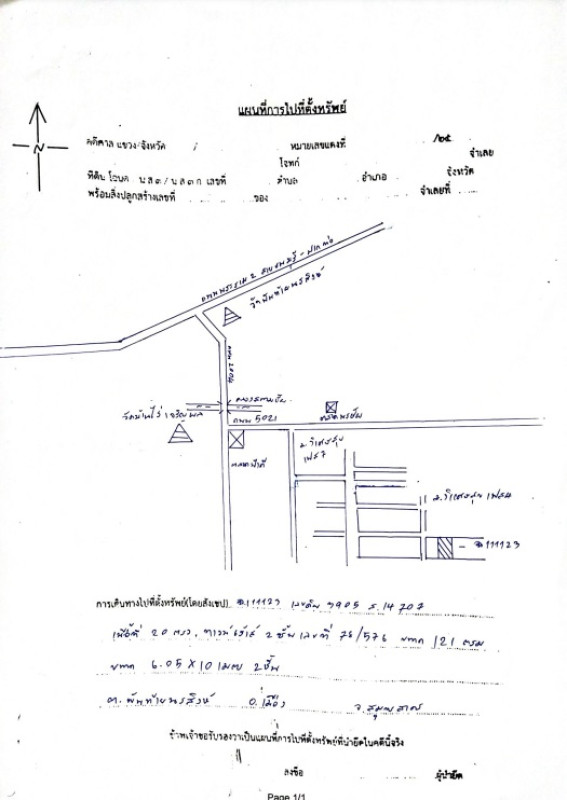 แผนที่การไปที่ตั้งทรัพย์
N
คดีศาล แขวง/จังหวัด หมายเลขแดงที่ /๒๕
โจทก์ จำเลย
ที่ดิน โฉนด น.ส.๓ / น.ส.๓ ก. เลขที่ ตำบล อำเภอ จังหวัด
พร้อมสิ่งปลูกสร้างเลขที่ ของ จำเลยที่
ถนนพระราม 2
วัดพันท้ายนรสิงห์
คลองสามขีด
วัดบ้านไร่เจริญผล
ถนน 5021
ม.วิเศษสุข
เฟส 7
ม.วิเศษสุข เฟส
111123
การเดินทางไปที่ตั้งทรัพย์(โดยสังเขป) 111123 เลขดิน 3905 ร. 14707
เนื้อที่ 20 ตรว. ทาวน์เฮ้าส์ 2 ชั้น เลขที่ 76/576 ขนาด 121 ตรม
ขนาด 6.05 X 10 เมตร 2 ชั้น
ต. พันท้ายนรสิงห์ อ. เมือง จ. สมุทรสาคร
ข้าพเจ้าขอรับรองว่าเป็นแผนที่การไปที่ตั้งทรัพย์ที่นำยึดในคดีนี้จริง
ลงชื่อ ผู้นำยึด
Page 1/1